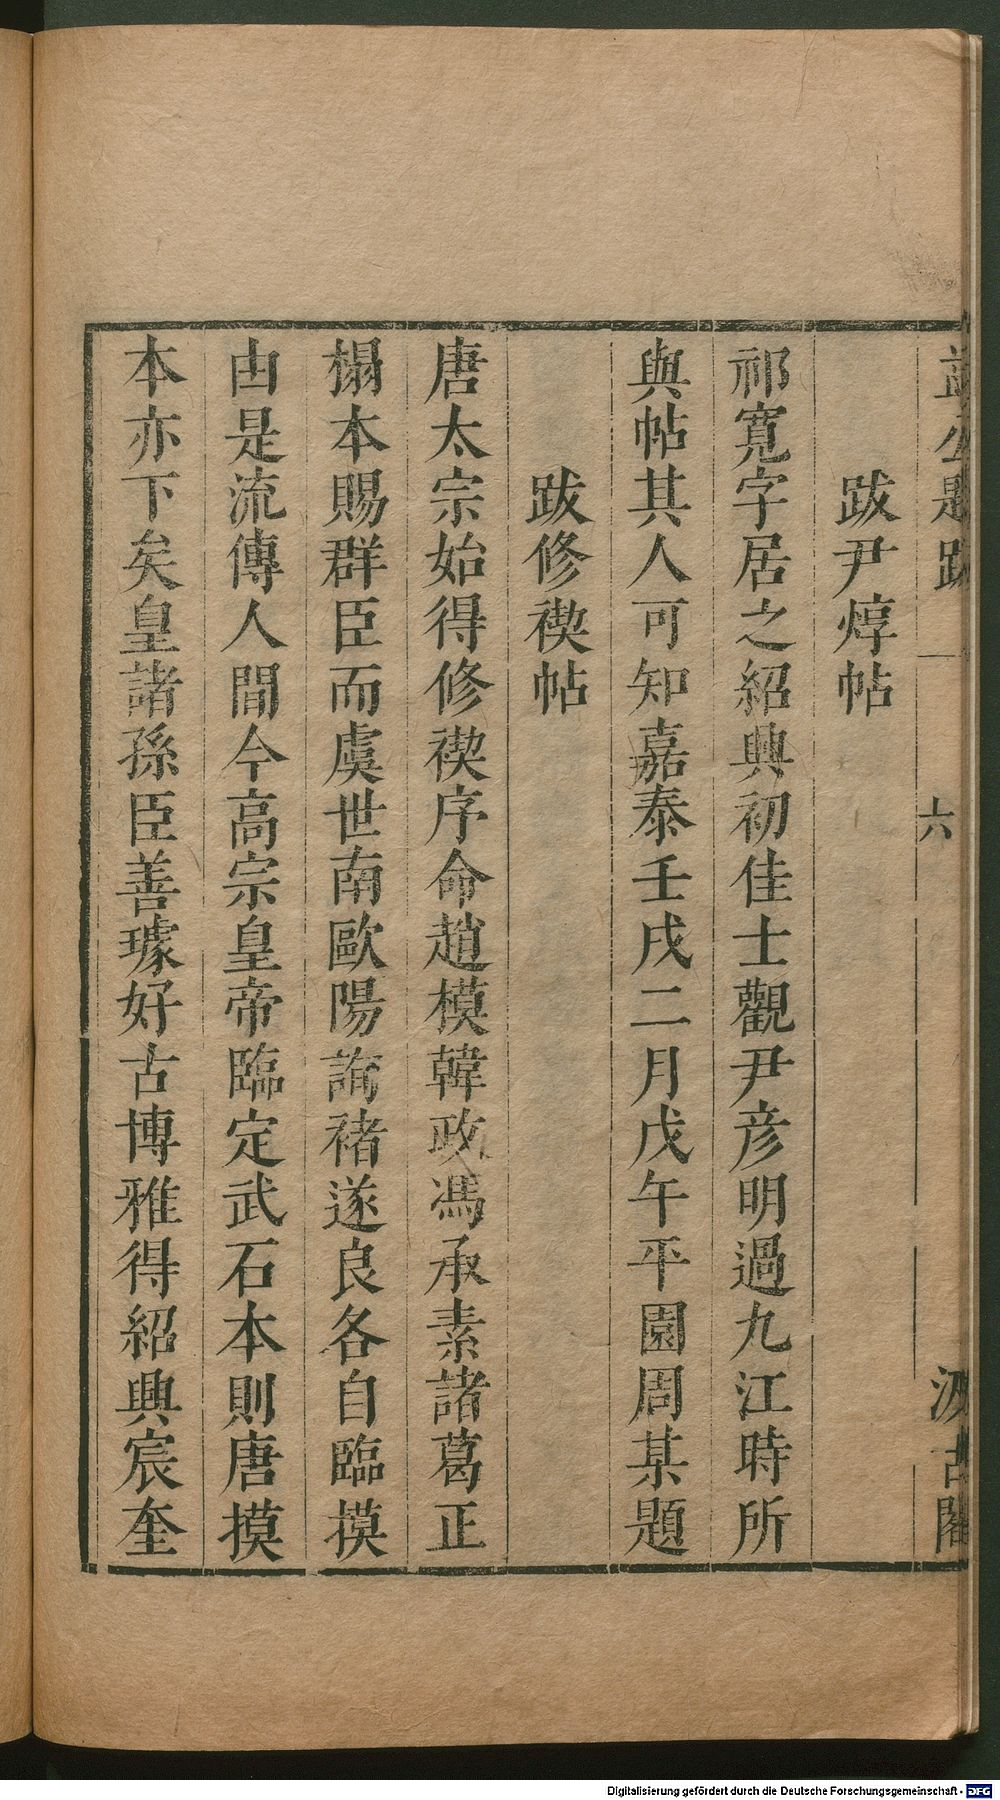 益公題跋 一 六 汲古閣
跋尹焞帖
祁寬字居之紹興初佳士觀尹彦明過九江時所
與帖其人可知嘉泰壬戌二月戊午平園周某題
跋修禊帖
唐太宗始得修禊序命趙模韓政馮承素諸葛正
搨本賜群臣而虞世南歐陽詢褚遂良各自臨摸
由是流傳人間今高宗皇帝臨定武石本則唐摸
本亦下矣皇諸孫臣善璩好古博雅得紹興宸奎
Digitalisierung gefördert durch die Deutsche Forschungsgemeinschaft - DFG